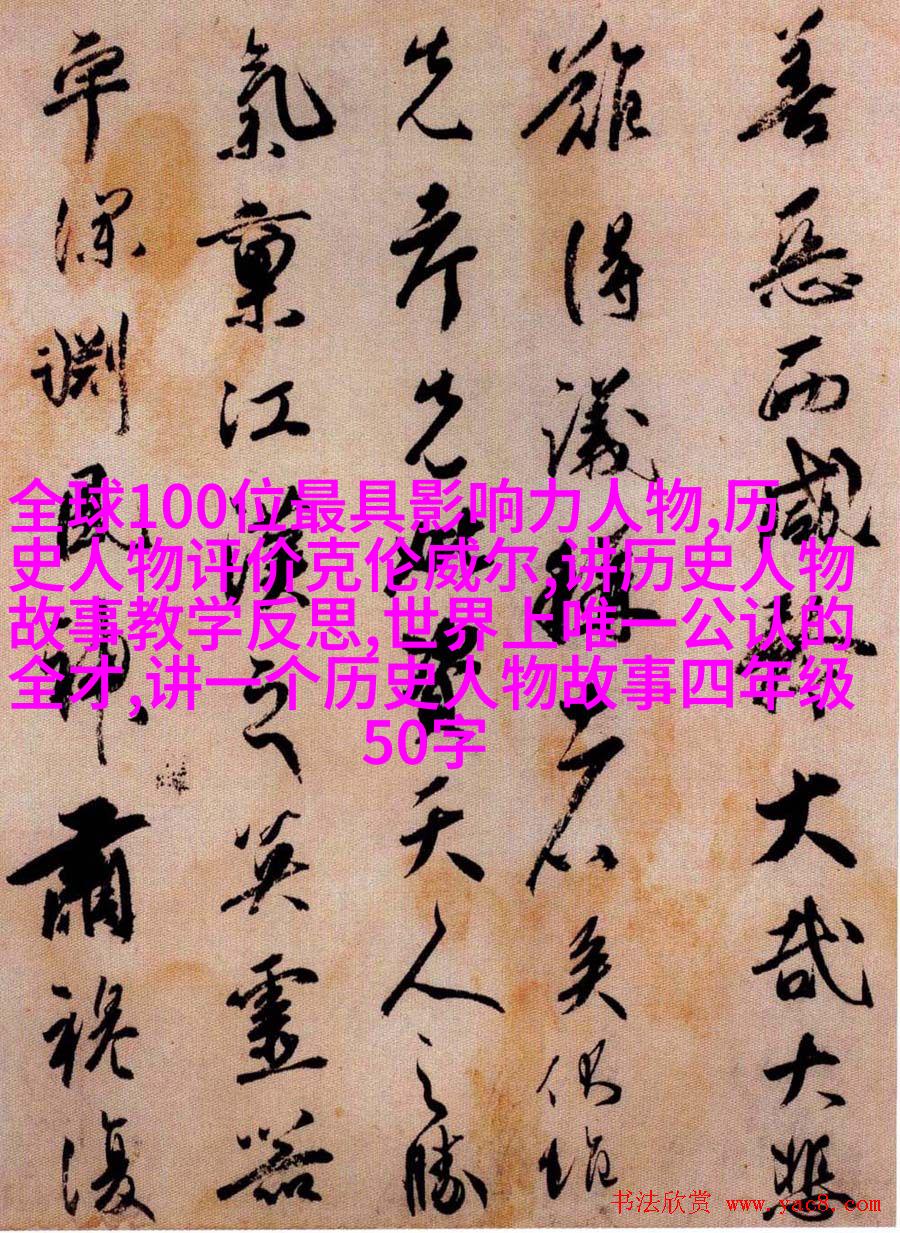 善惡而咸大哉大悲
得議矣
先天人之勝
氣稟江漢之英靈器
宇深淵風神肅穆復
全球100位最具影响力人物,历
史人物评价克伦威尔,讲历史人物
故事教学反思,世界上唯一公认的
全才,讲一个历史人物故事四年级
50字
书法欣赏 www.yac8.com